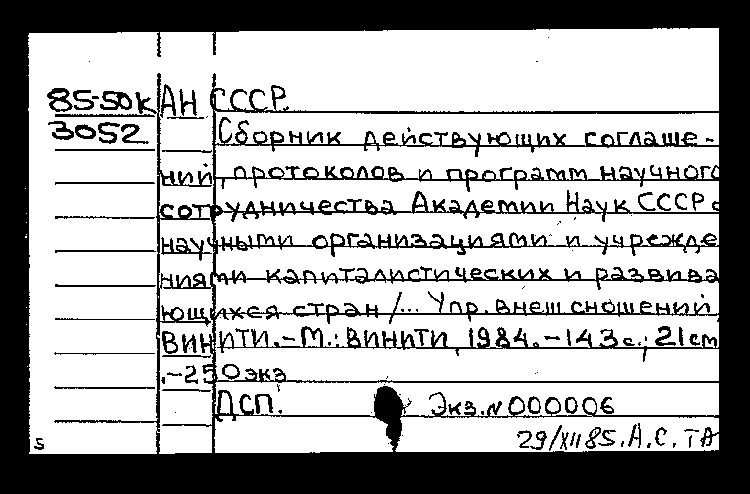 85-50к АН СССР.
3052 Сборник действующих соглаше-
ний, протоколов и программ научного
сотрудничества Академии Наук СССР с
научными организациями и учрежде
ниями капиталистических и развива
ющихся стран /... Упр. внеш сношений,
ВИНИТИ.-М.: ВИНИТИ, 1984.-143с.; 21см
.-250экз
ДСП. Экз.№000006
29/XII85.А.С.ТА
s